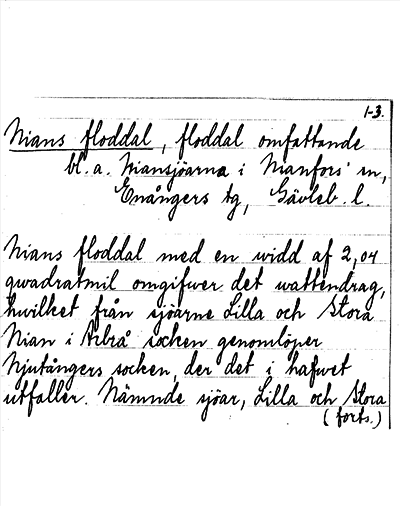 1-3.
Nians floddal, floddal omfattande
bl. a. Niansjöarna i Nianfors' sn,
Enångers tg, Gävleb. l.
Nians floddal med en widd af 2,04
qwadratmil omgifwer det wattendrag,
hwilket från sjöarne Lilla och Stora
Nian i Arbrå socken genomlöper
Njutångers socken, der det i hafwet
utfaller. Nämnde sjöar, Lilla och Stora
(forts.)